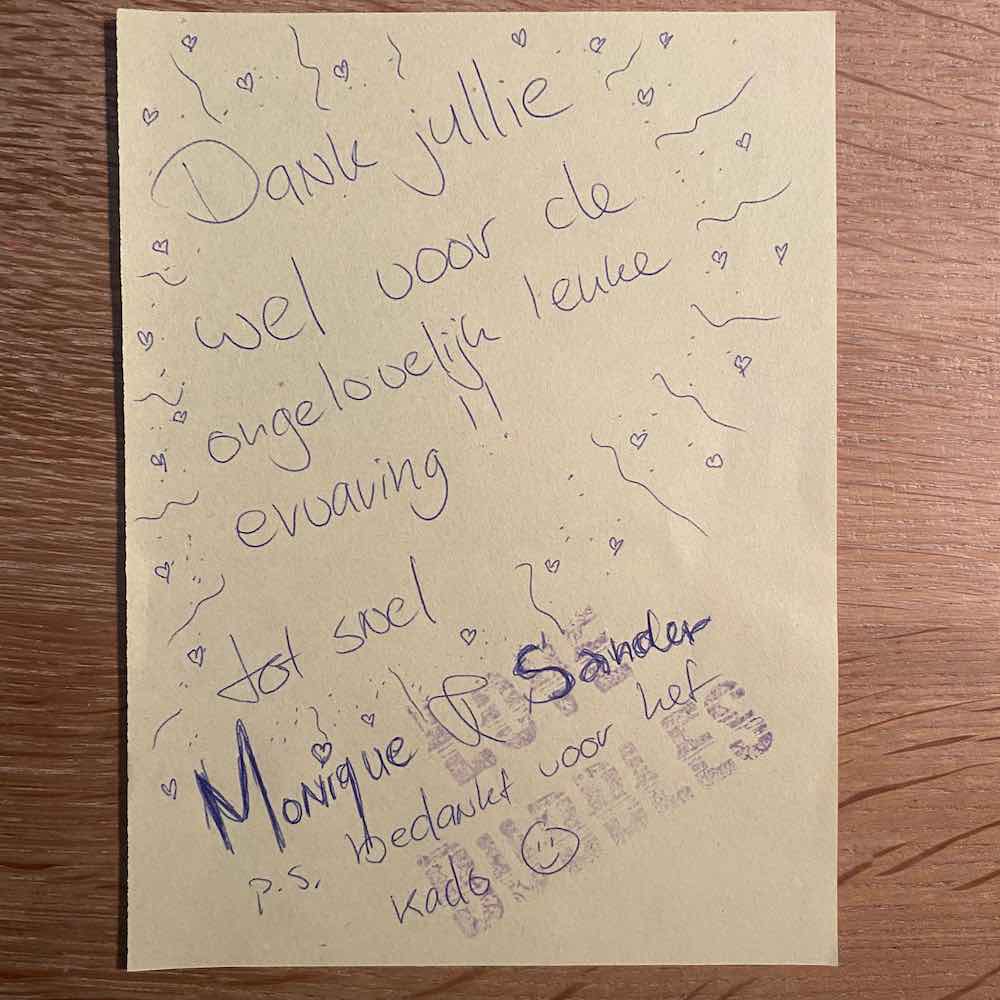 Dank jullie
wel voor de
ongelovelijk leuke
ervaring!!
tot snel
Monique & Sander
p.s. bedankt voor het
kado
LOVE
BUBBLES